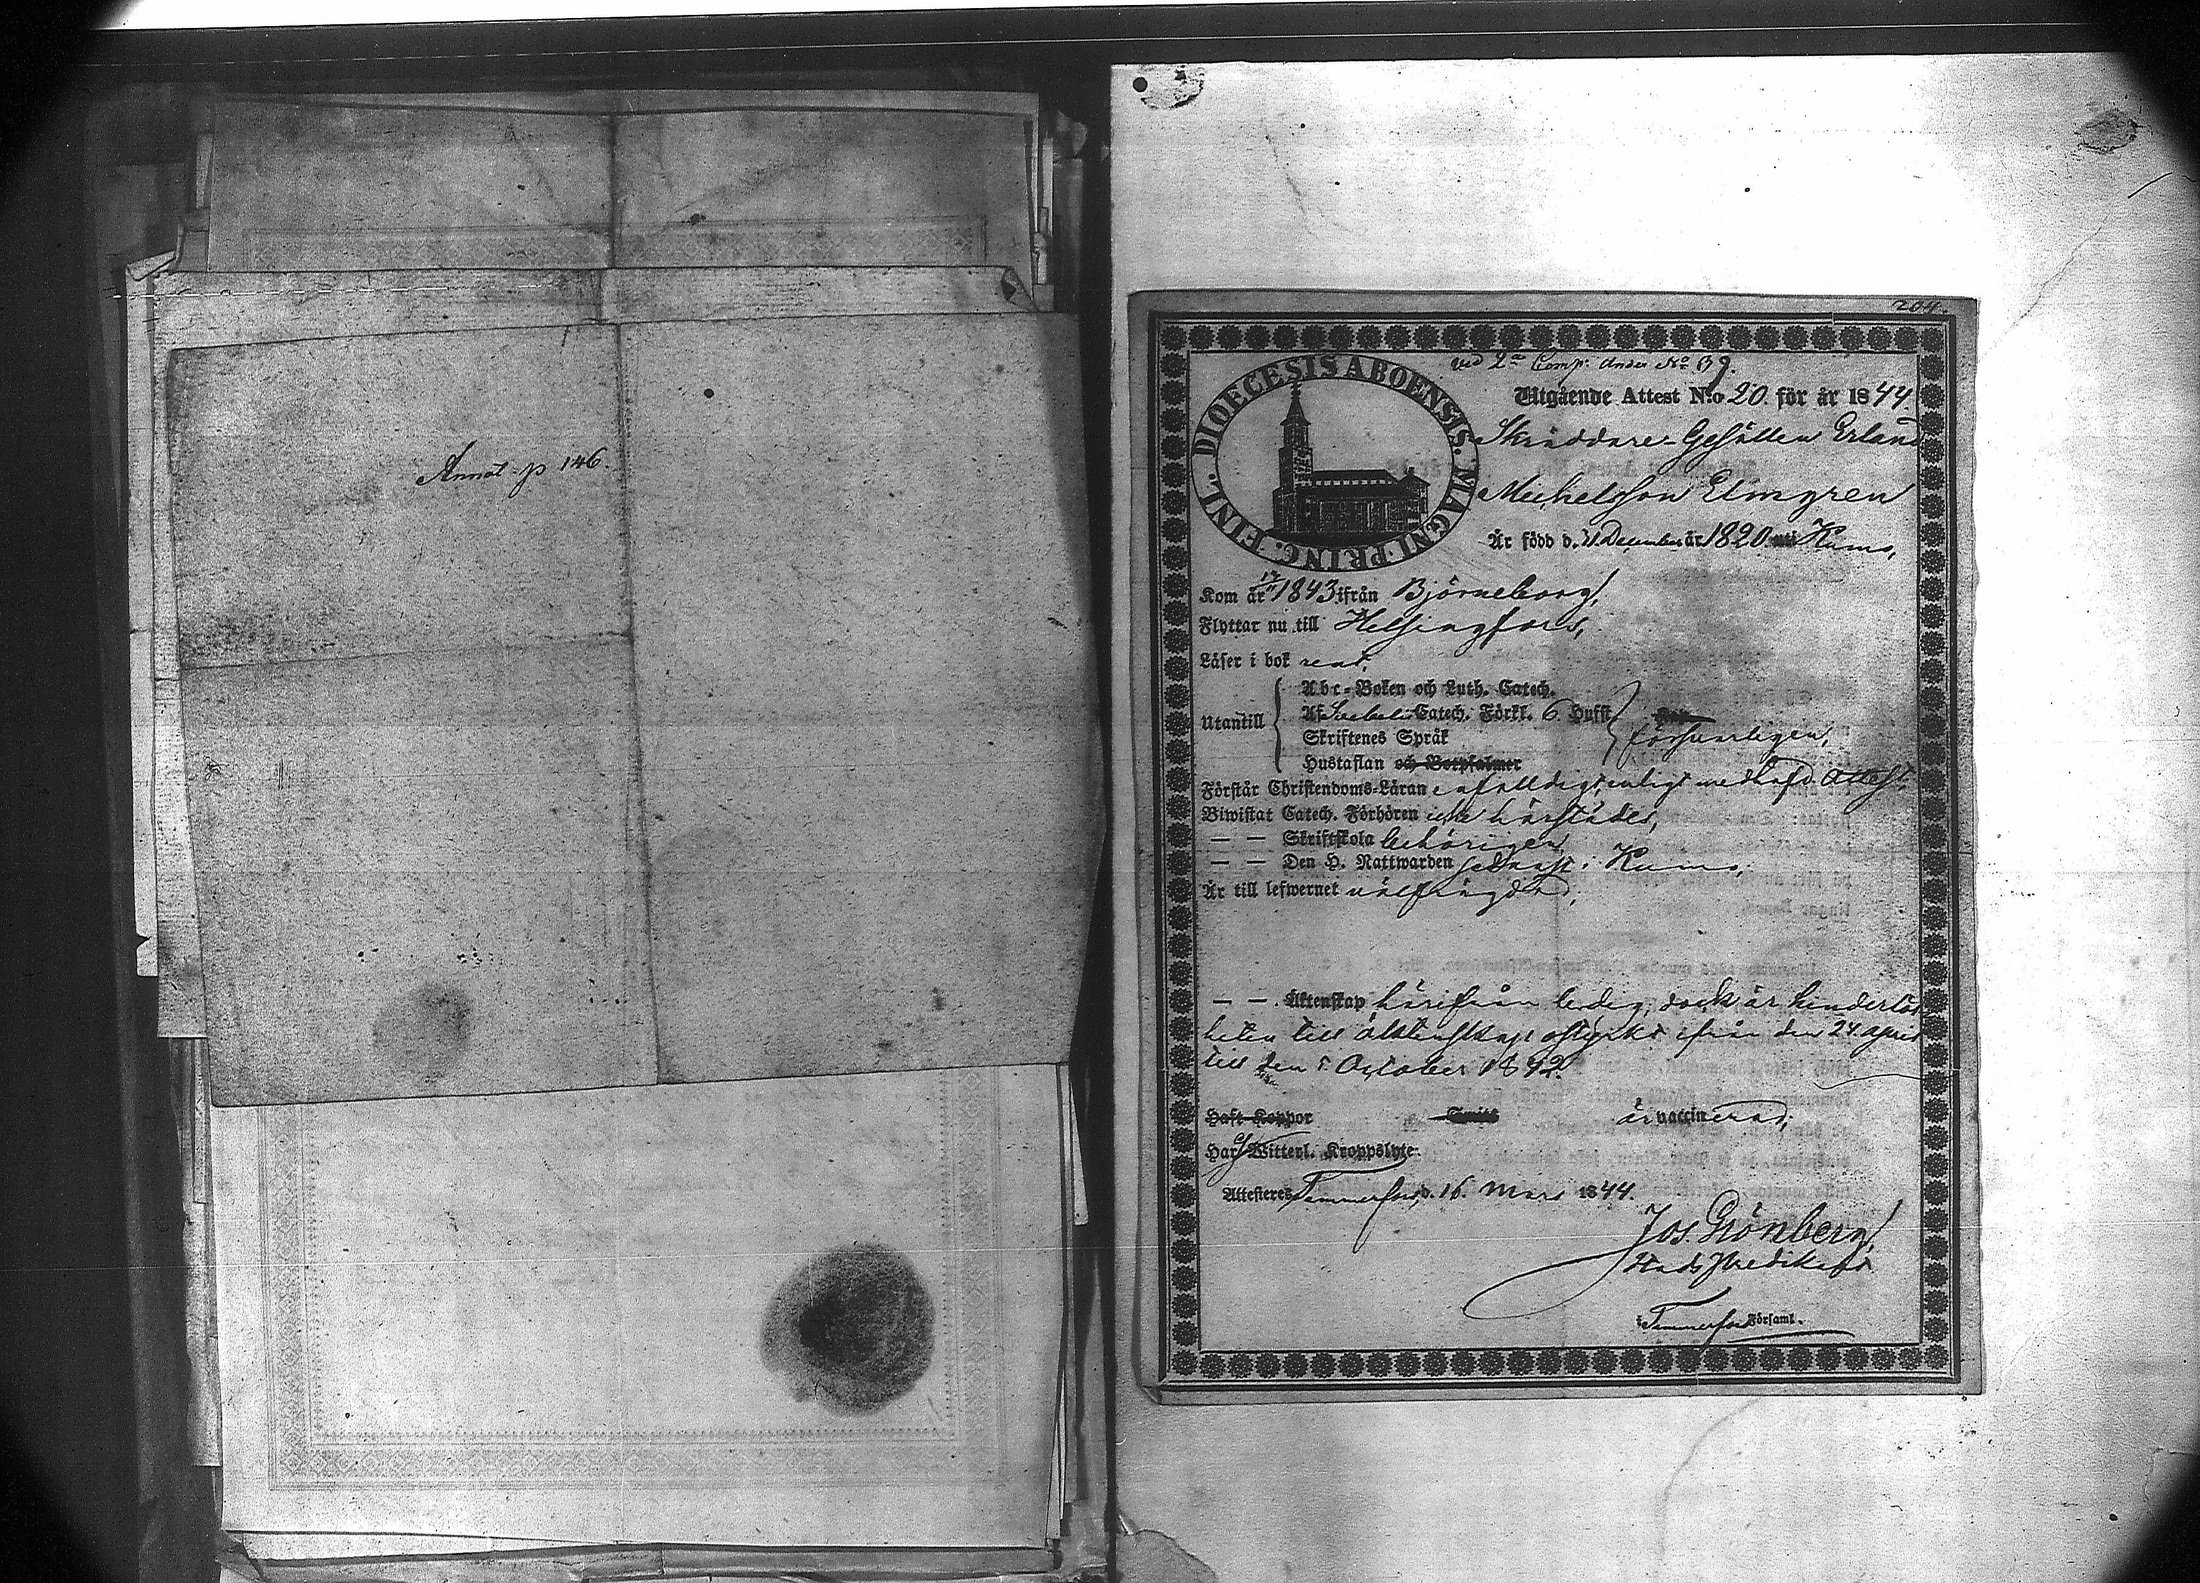 Annot. p 146.
204.
ved 2a Comp. under No 39.
DIOECESIS ABOENSIS. MAGNI PRINC. FINL.
Utgående Attest N:o 20. för år 1844.
Skräddare-Gesällen Erland
Michelsson Elmgren
Är född d. 21 December år 1820 uti Kumo,
Kom år 17/11 1843 ifrån Björneborg,
Flyttar nu till Helsingfors,
Läser i bok rent,
Utantill
Abc-Boken och Luth. Catech.
Af Svebelii Catech. Förkl. 6 Hufst.
Skriftenes Språk
Hustaflan och Botpsalmer
försvarligen,
Förstår Christendoms-Läran enfaldigt, enligt medhafd attest.
Biwistat Catech. Förhören icke härstädes,
— — Skriftskola behörigen,
— — Den H. Nattwarden sednast i Kumo,
Är till lefwernet välfrägdad,
— — Äktenskap härifrån ledig, dock är hinderlös-
heten till äktenskap ostyrkt ifrån den 24 april
till den 5 October 1842.
Haft Koppor är vaccinerad,
Har Witterl. Kroppslyte.
Attesteres Tammerfors, d. 16. Mars 1844.
Jos. Grönberg,
StadsPredikant
i Tammerfors Församl.